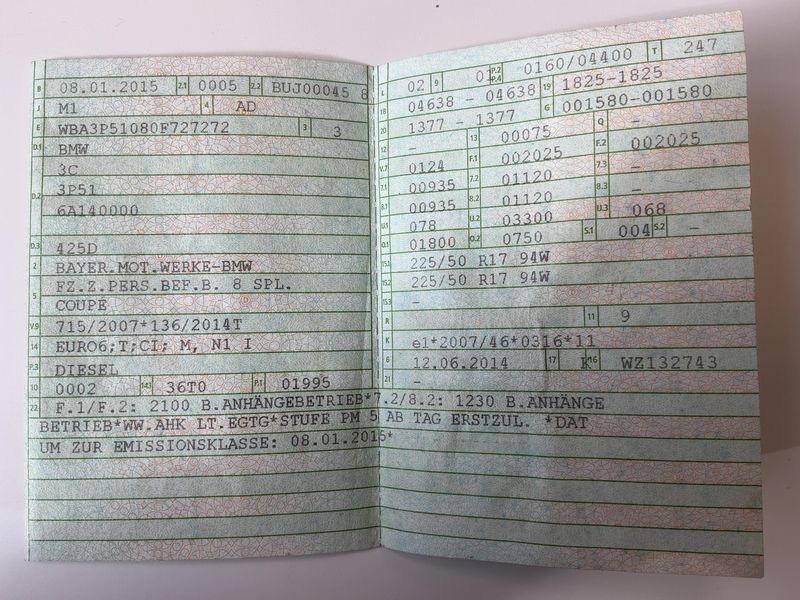 B 08.01.2015 2.1 0005 2.2 BUJ00045 8
J M1 4 AD
E WBA3P51080F727272 3 3
D.1 BMW
3C
D.2 3P51
6A140000
D.3 425D
2 BAYER.MOT.WERKE-BMW
FZ.Z.PERS.BEF.B. 8 SPL.
5 COUPE
V.9 715/2007*136/2014T
14 EURO6;T;CI; M, N1 I
P.3 DIESEL
10 0002 14.1 36T0 P.1 01995
L 02 9 01 P.2 P.4 0160/04400 T 247
18 04638 - 04638 19 1825-1825
20 1377 - 1377 G 001580-001580
12 - 13 00075 Q -
V.7 0124 F.1 002025 F.2 002025
7.1 00935 7.2 01120 7.3 -
8.1 00935 8.2 01120 8.3 -
U.1 078 U.2 03300 U.3 068
O.1 01800 O.2 0750 S.1 004 S.2 -
15.1 225/50 R17 94W
15.2 225/50 R17 94W
15.3 -
R 11 9
K e1*2007/46*0316*11
6 12.06.2014 17 K 16 WZ132743
21 -
22 F.1/F.2: 2100 B.ANHÄNGEBETRIEB*7.2/8.2: 1230 B.ANHÄNGE
BETRIEB*WW.AHK LT.EGTG*STUFE PM 5 AB TAG ERSTZUL. *DAT
UM ZUR EMISSIONSKLASSE: 08.01.2015*